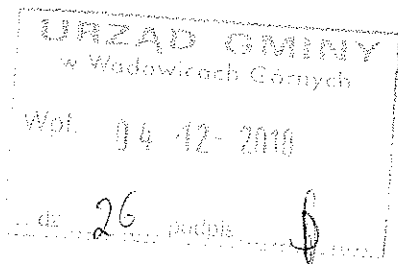 URZĄD GMINY
w Wadowicach Górnych
Wpł. 04 -12- 2018
dz 26 podpis